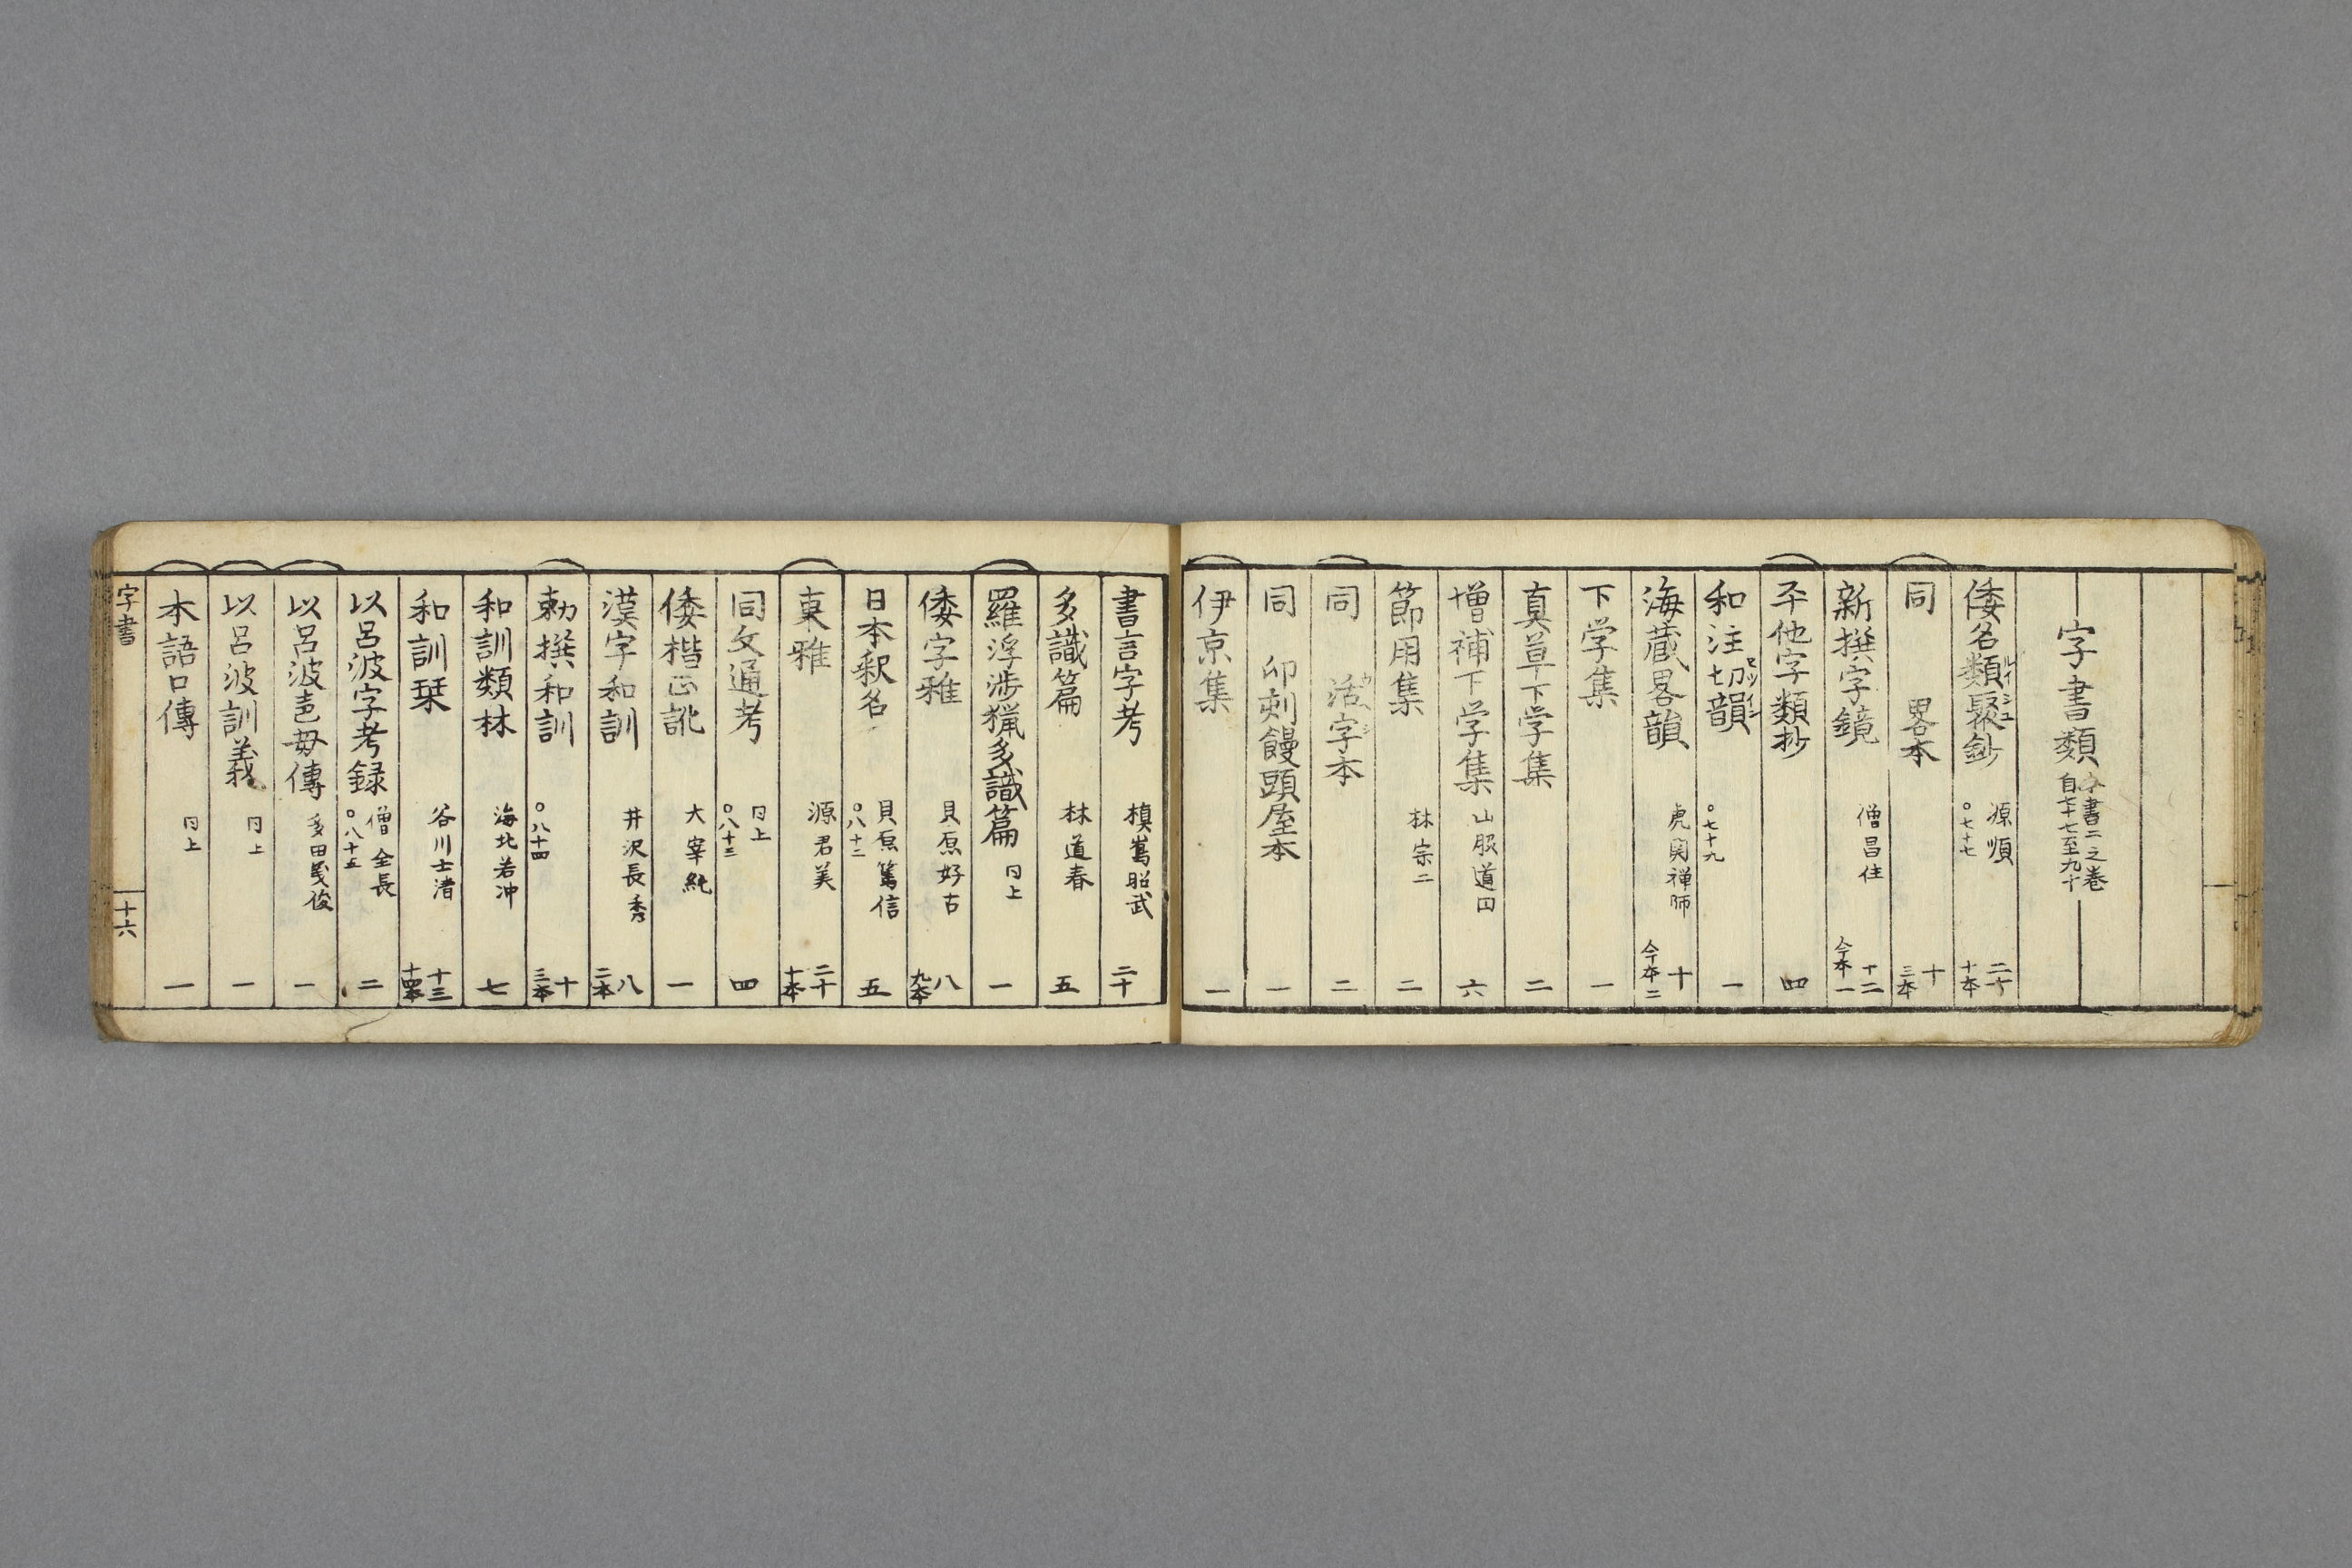 字書類 字書二之巻 自七十七至九十
倭名類聚鈔 ルイジユ 源順 ○七十七 二十 十本
同 畧本 十 三本
新撰字鏡 僧昌住 十二 今本一
平他字類抄 四
和注切韻 セツイン ○七十九 一
海蔵畧韻 虎関禅師 十 今本二
下学集 一
真草下学集 二
増補下学集 山脇道円 六
節用集 林宗二 二
同 活字本 二
同 印刻饅頭屋本 一
伊京集 一
書言字考 槙嶌昭武 二十
多識篇 林道春 五
羅浮渉猟多識篇 同上 一
倭字雅 貝原好古 八 九本
日本釈名 貝原篤信 ○八十二 五
東雅 源君美 二十 十本
同文通考 同上 ○八十三 四
倭楷正訛 大宰純 一
漢字和訓 井沢長秀 八 二本
勅撰和訓 ○八十四 十 三本
和訓類林 海北若冲 七
和訓栞 谷川士清 十三 十四本
以呂波字考録 僧全長 ○八十五 二
以呂波声母傳 多田義俊 一
以呂波訓義 同上 一
本語口傳 同上 一
字書 十六